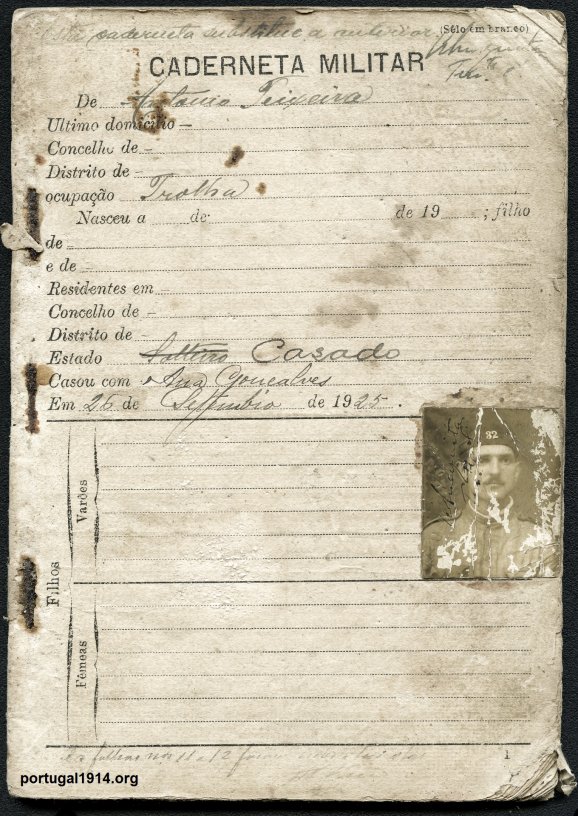 Esta caderneta substitue a anterior
(Sêlo em branco)
CADERNETA MILITAR
De António Teixeira
Ultimo domicilio
Concelho de
Distrito de
ocupação Trolha
Nasceu a de de 19 ; filho
de
e de
Residentes em
Concelho de
Distrito de
Estado Solteiro Casado
Casou com Ana Gonçalves
Em 26 de Setembro de 1925.
32
Filhos
Varões
Fêmeas
as folhas nos 11 e 12
1
portugal1914.org